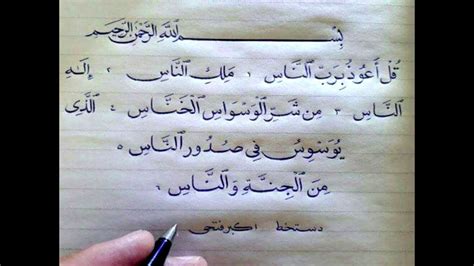 بِسْمِ ٱللَّهِ ٱلرَّحْمَٰنِ ٱلرَّحِيمِ
قُلْ أَعُوذُ بِرَبِّ ٱلنَّاسِ ١ مَلِكِ ٱلنَّاسِ ٢ إِلَٰهِ
ٱلنَّاسِ ٣ مِن شَرِّ ٱلْوَسْوَاسِ ٱلْخَنَّاسِ ٤ ٱلَّذِى
يُوَسْوِسُ فِى صُدُورِ ٱلنَّاسِ ٥
مِنَ ٱلْجِنَّةِ وَٱلنَّاسِ ٦
دستخط اکبر فتحی